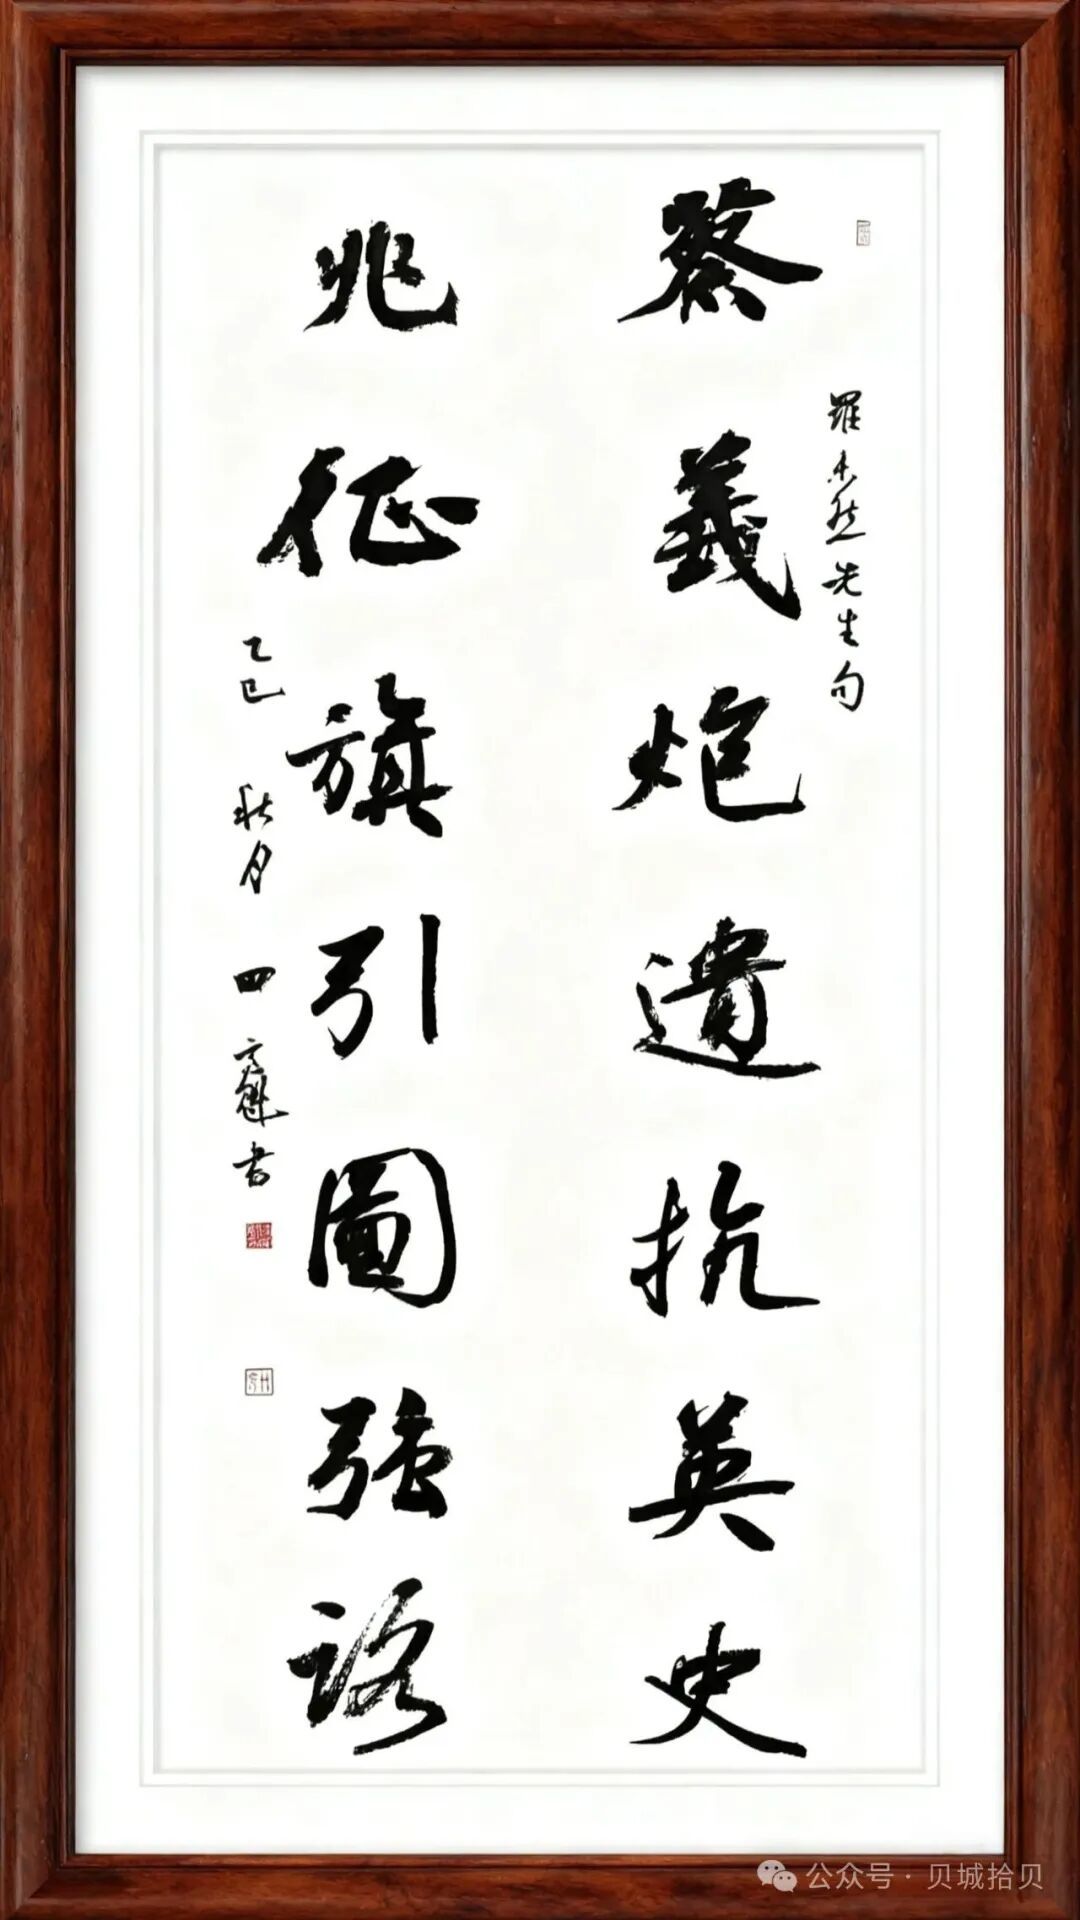 羅然先生句
蔡義炮遺抗英史
兆征旗引圖強路
乙巳 秋月 四 書
公众号 · 贝城拾贝